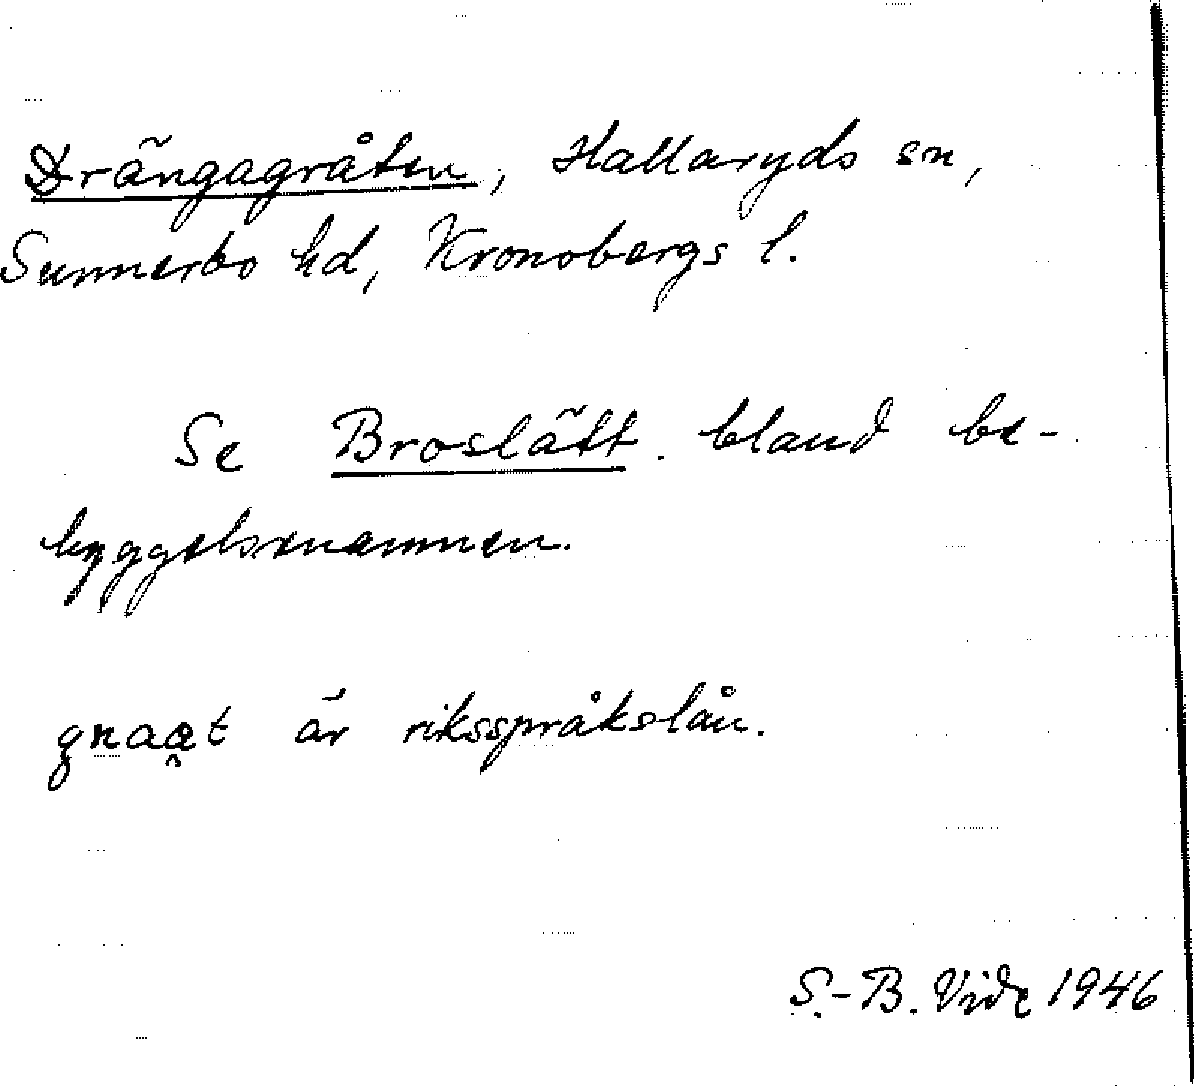 Drängagråten, Hallaryds sn,
Sunnerbo hd, Kronobergs l.
Se Broslätt bland be-
byggelsenamnen.
är riksspråkslån.
S.-B. Vide 1946